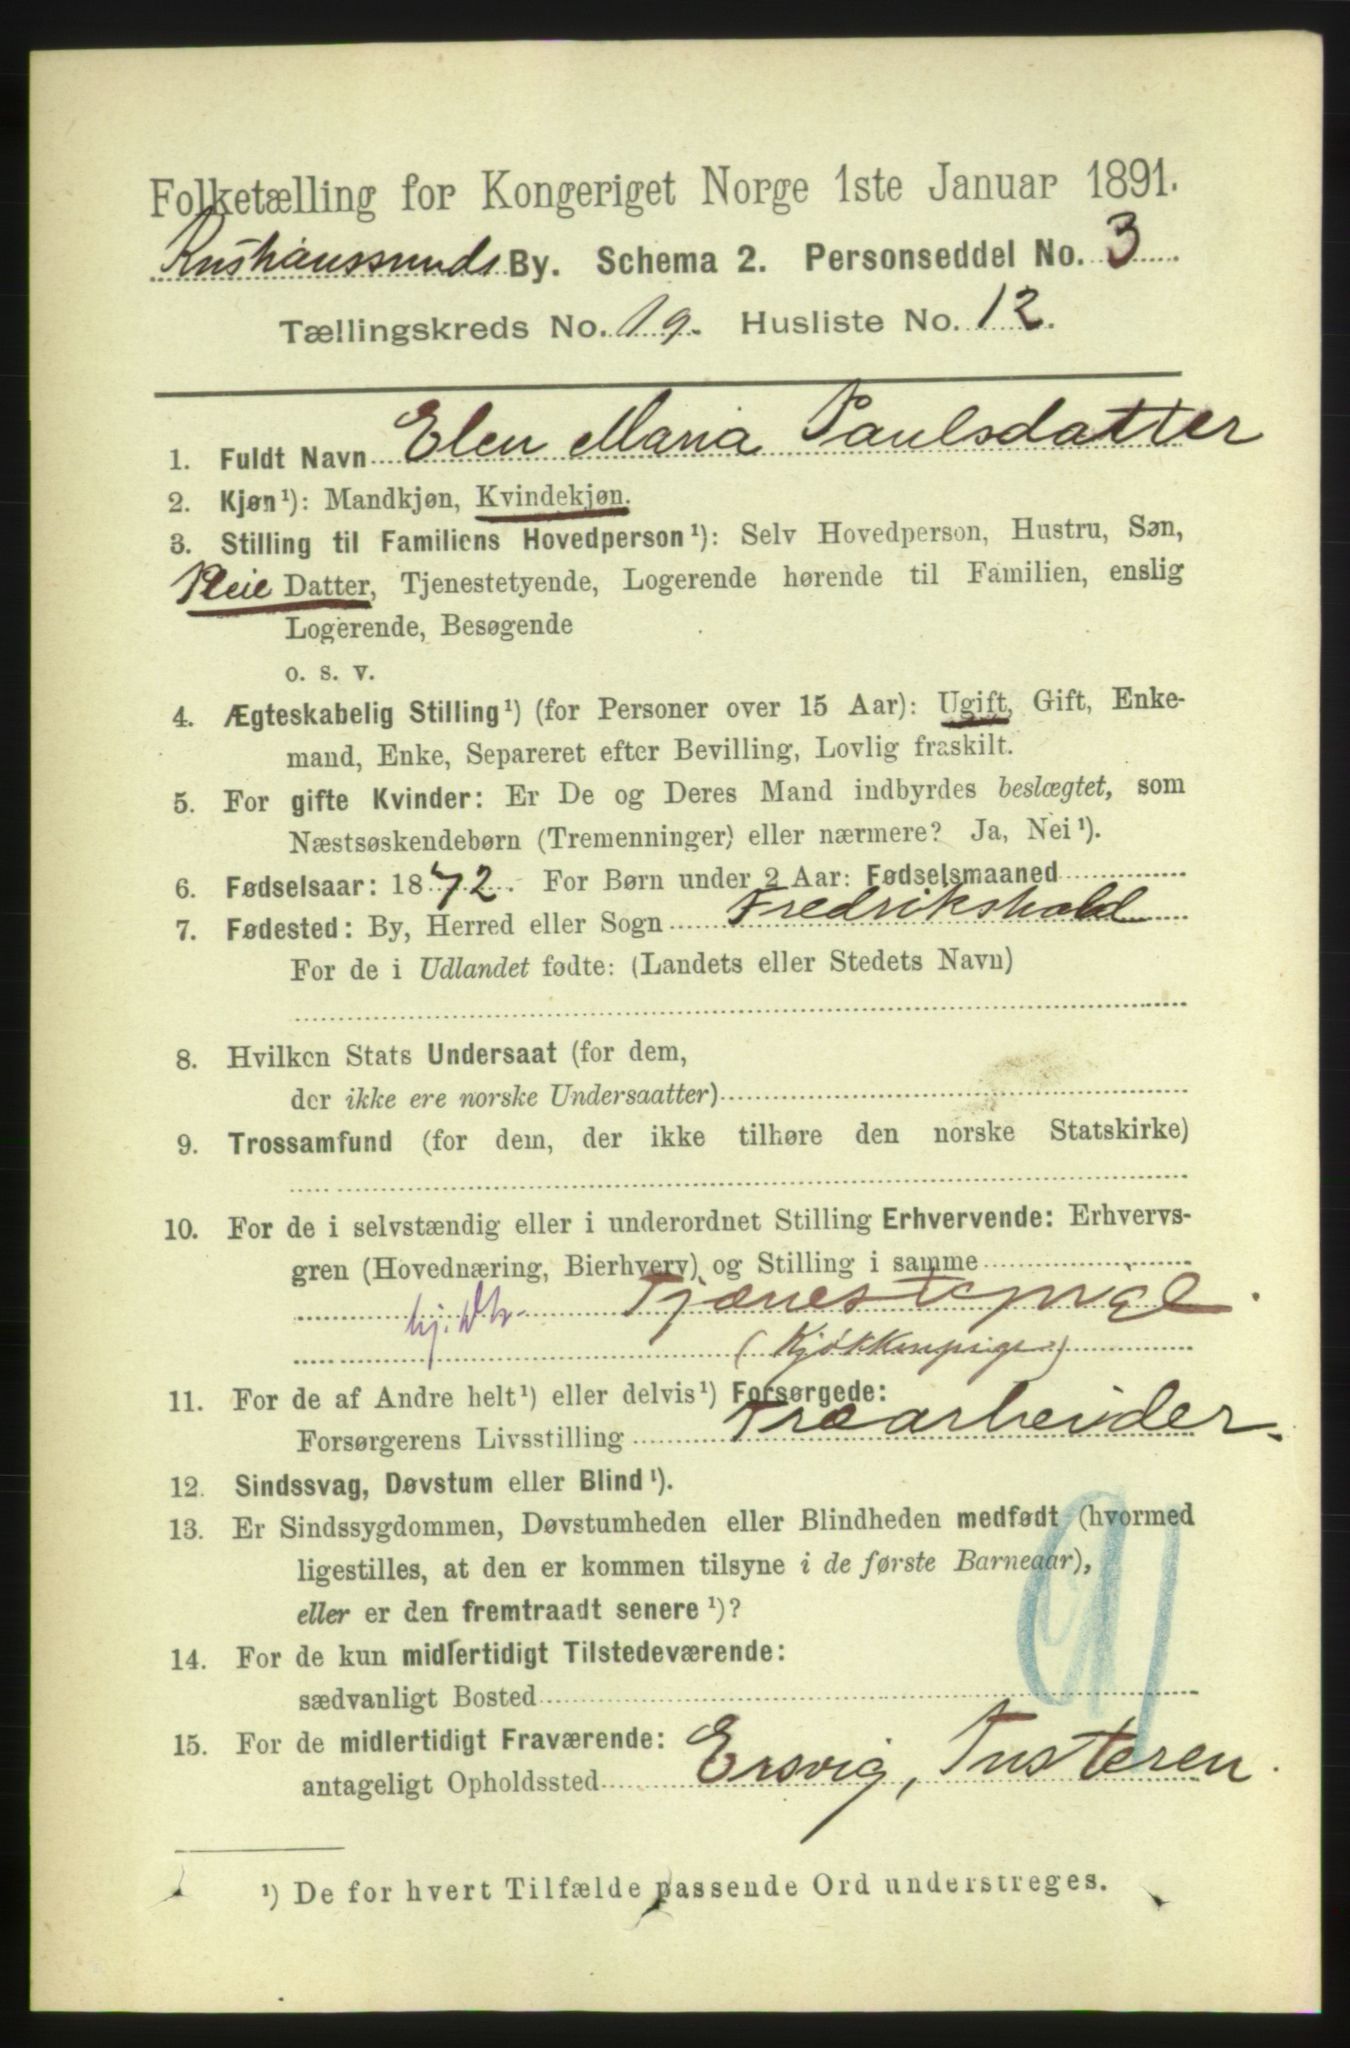 Folketælling for Kongeriget Norge 1ste Januar 1891.
Kristianssunds By. Schema 2. Personseddel No. 3
Tællingskreds No. 19. Husliste No. 12.
1. Fuldt Navn Elen Maria Paulsdatter
2. Kjøn¹): Mandkjøn, Kvindekjøn.
3. Stilling til Familiens Hovedperson¹): Selv Hovedperson, Hustru, Søn,
Pleie Datter, Tjenestetyende, Logerende hørende til Familien, enslig
Logerende, Besøgende
o. s. v.
4. Ægteskabelig Stilling¹) (for Personer over 15 Aar): Ugift, Gift, Enke-
mand, Enke, Separeret efter Bevilling, Lovlig fraskilt.
5. For gifte Kvinder: Er De og Deres Mand indbyrdes beslægtet, som
Næstsøskendebørn (Tremenninger) eller nærmere? Ja, Nei¹).
6. Fødselsaar: 1872. For Børn under 2 Aar: Fødselsmaaned
7. Fødested: By, Herred eller Sogn Fredrikshald
For de i Udlandet fødte: (Landets eller Stedets Navn)
8. Hvilken Stats Undersaat (for dem,
der ikke ere norske Undersaatter)
9. Trossamfund (for dem, der ikke tilhøre den norske Statskirke)
10. For de i selvstændig eller i underordnet Stilling Erhvervende: Erhvervs-
gren (Hovednæring, Bierhverv) og Stilling i samme
Tjænestepige.
(Kjøkkenpige)
11. For de af Andre helt¹) eller delvis¹) Forsørgede:
Forsørgerens Livsstilling Træarbeider.
12. Sindssvag, Døvstum eller Blind¹).
13. Er Sindssygdommen, Døvstumheden eller Blindheden medfødt (hvormed
ligestilles, at den er kommen tilsyne i de første Barneaar),
eller er den fremtraadt senere¹)?
14. For de kun midlertidigt Tilstedeværende:
sædvanligt Bosted
15. For de midlertidigt Fraværende:
antageligt Opholdssted Ersvig, Tusteren.
¹) De for hvert Tilfælde passende Ord understreges.